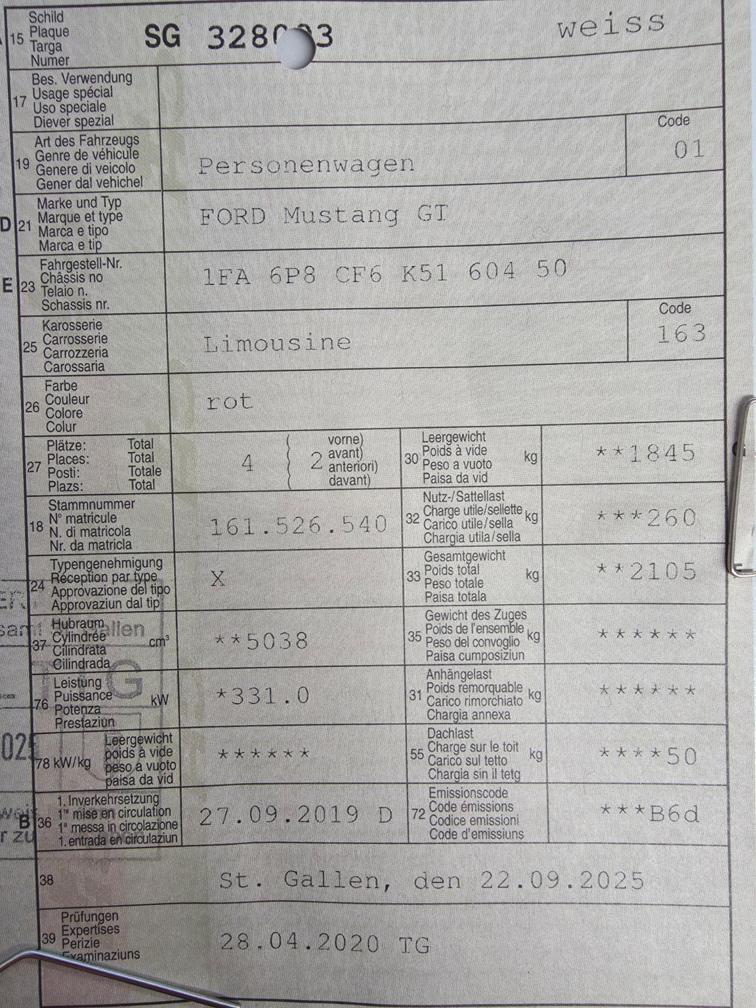 15 Schild
Plaque
Targa
Numer
SG 328 3 weiss
17 Bes. Verwendung
Usage spécial
Uso speciale
Diever spezial
19 Art des Fahrzeugs
Genre de véhicule
Genere di veicolo
Gener dal vehichel
Personenwagen
Code
01
D 21 Marke und Typ
Marque et type
Marca e tipo
Marca e tip
FORD Mustang GT
E 23 Fahrgestell-Nr.
Châssis no
Telaio n.
Schassis nr.
1FA 6P8 CF6 K51 604 50
25 Karosserie
Carrosserie
Carrozzeria
Carossaria
Limousine
Code
163
26 Farbe
Couleur
Colore
Colur
rot
27 Plätze: Total
Places: Total
Posti: Totale
Plazs: Total
4 ( 2 vorne)
avant)
anteriori)
davant)
30 Leergewicht
Poids à vide
Peso a vuoto
Paisa da vid
kg
**1845
18 Stammnummer
N° matricule
N. di matricola
Nr. da matricla
161.526.540
32 Nutz-/Sattellast
Charge utile/sellette
Carico utile/sella
Chargia utila/sella
kg
***260
24 Typengenehmigung
Réception par type
Approvazione del tipo
Approvaziun dal tip
X
33 Gesamtgewicht
Poids total
Peso totale
Paisa totala
kg
**2105
37 Hubraum
Cylindrée
Cilindrata
Cilindrada
cm³
**5038
35 Gewicht des Zuges
Poids de l'ensemble
Peso del convoglio
Paisa cumposiziun
kg
******
76 Leistung
Puissance
Potenza
Prestaziun
kW
*331.0
31 Anhängelast
Poids remorquable
Carico rimorchiato
Chargia annexa
kg
******
78 kW/kg Leergewicht
poids à vide
peso a vuoto
paisa da vid
******
55 Dachlast
Charge sur le toit
Carico sul tetto
Chargia sin il tetg
kg
****50
B 36 1. Inverkehrsetzung
1re mise en circulation
1a messa in circolazione
1. entrada en circulaziun
27.09.2019 D
72 Emissionscode
Code émissions
Codice emissioni
Code d'emissiuns
***B6d
38
St. Gallen, den 22.09.2025
39 Prüfungen
Expertises
Perizie
Examinaziuns
28.04.2020 TG